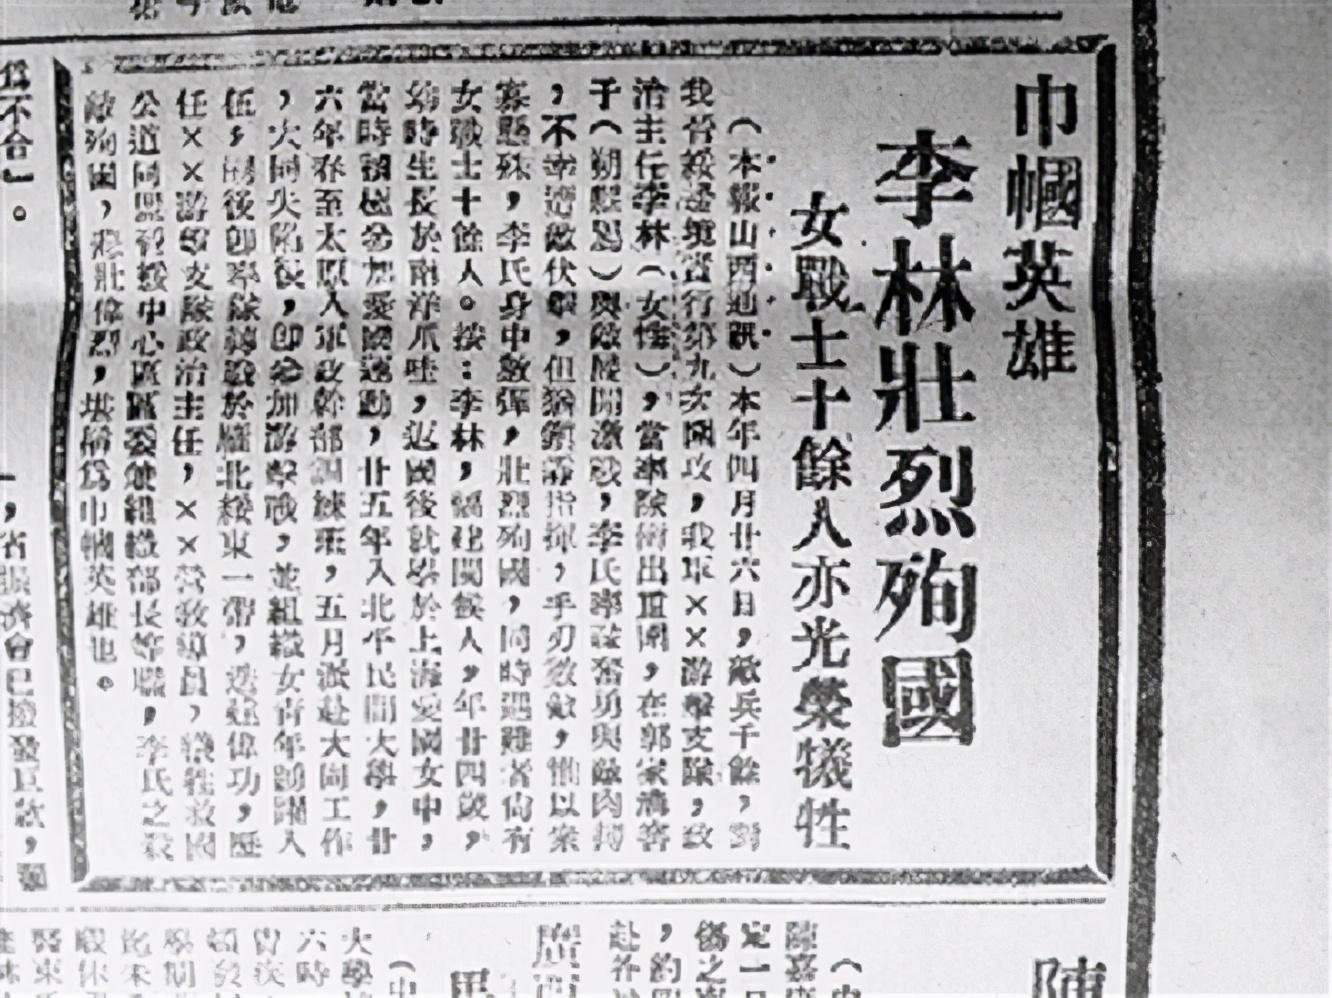 巾幗英雄
李林壯烈殉國
女戰士十餘人亦光榮犧牲
（本報山西通訊）本年四月廿六日，敵兵千餘，對
我晉綏邊境實行第九次圍攻，我軍××游擊支隊，政
治主任李林（女性），當率隊衝出重圍，在郭家窰
子（朔縣屬）與敵展開激戰，李氏率敢奮勇與敵肉搏
，不幸遭敵伏擊，但猶鎮靜指揮，手刃數敵，惟以衆
寡懸殊，李氏身中數彈，壯烈殉國，同時遇難者尚有
女戰士十餘人。按：李林，福建閩侯人，年廿四歲，
幼時生長於南洋爪哇，返國後就學於上海愛國女中，
當時積極參加愛國運動，廿五年入北平民國大學，廿
六年春至太原入軍政幹部訓練班，五月派赴大同工作
，大同失陷後，即參加游擊戰，並組織女青年踴躍入
伍，嗣後即率隊轉戰於雁北綏東一帶，迭建偉功，歷
任××游擊支隊政治主任，××營教導員，犧牲救國
公道同盟晉綏中心區區委兼組織部長等職，李氏之殺
敵殉國，悲壯偉烈，堪稱爲巾幗英雄也。
爲不合」。